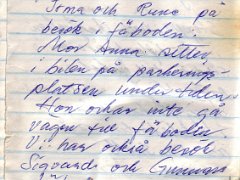 Irma och Rune på
besök i fäboden.
Mor Anna sitter
i bilen på parkerings-
platsen under tiden.
Hon orkar inte gå
vägen till fäboden.
Vi har också besök
Sigvard och Gunnar